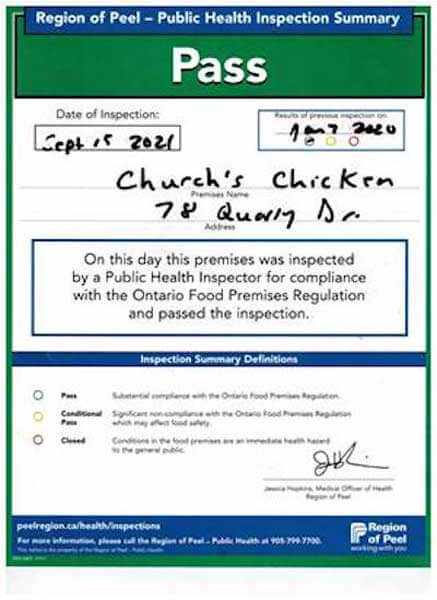 Region of Peel – Public Health Inspection Summary
Pass
Date of Inspection:
Results of previous inspection on:
Sept 15 2021
Jan 7 2020
Church's Chicken
Premises Name
78 Quarry Dr.
Address
On this day this premises was inspected
by a Public Health Inspector for compliance
with the Ontario Food Premises Regulation
and passed the inspection.
Inspection Summary Definitions
Pass Substantial compliance with the Ontario Food Premises Regulation.
Conditional Pass Significant non-compliance with the Ontario Food Premises Regulation
which may affect food safety.
Closed Conditions in the food premises are an immediate health hazard
to the general public.
Jessica Hopkins, Medical Officer of Health
Region of Peel
peelregion.ca/health/inspections
For more information, please call the Region of Peel – Public Health at 905-799-7700.
This notice is the property of the Region of Peel - Public Health
Region
of Peel
working with you